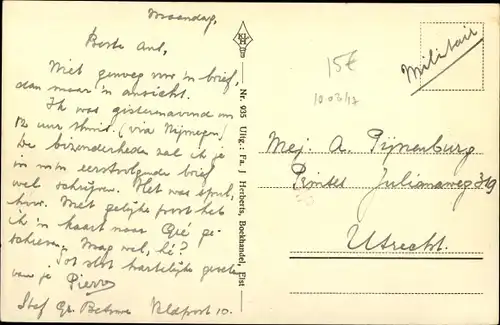 Maandag,
Beste Ant,
Niet genoeg voor 'n brief,
dan maar 'n ansicht.
Ik was gisteravond om
12 uur thuis (via Nijmegen)
De bizonderheden zal ik je
in m'n eerstvolgende brief
wel schrijven. Het was
Met gelijke post heb
ik 'n kaart naar ge-
schreven. Mag wel, hè?
Tot slot hartelijke groeten
van je Pierre
Staf Gr. Betuwe Veldpost 10.
Nr. 935 Uitg.: Fa. J Herberts, Boekhandel, Elst
15€
10.03/17
Militair
Mej. A. Pijnenburg
Prinses Julianaweg 319
Utrecht.